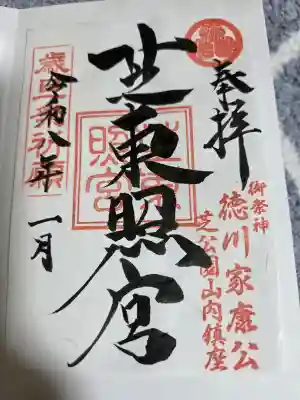 奉拝
御祭神
徳川家康公
芝公園山内鎮座
芝東照宮
芝東照宮
歳旦祭祈願
令和八年
一月